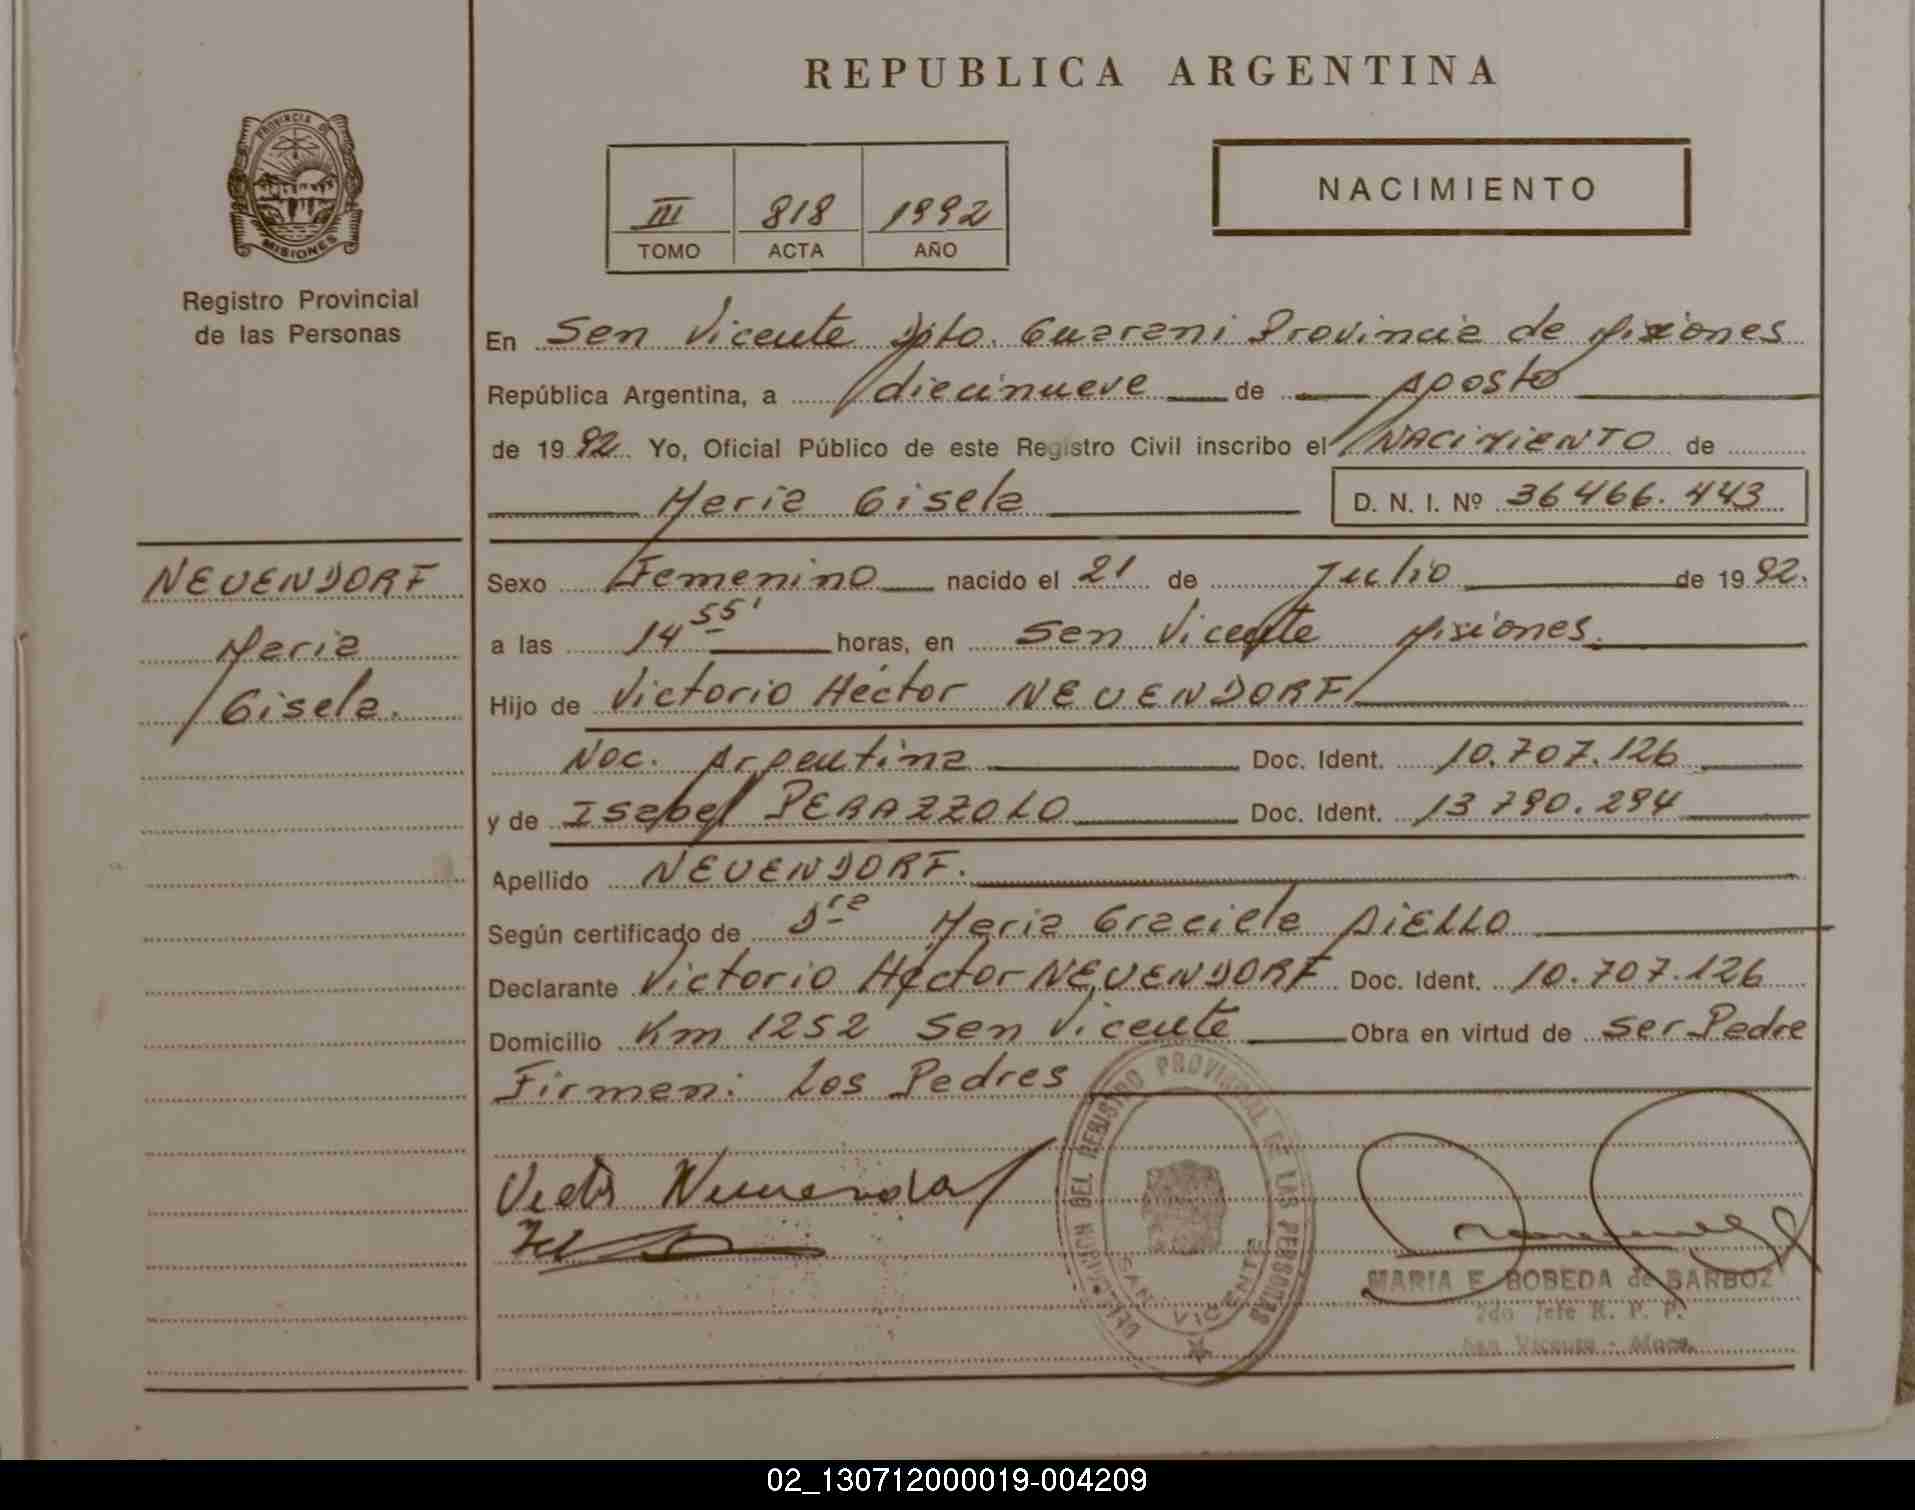 REPUBLICA ARGENTINA
PROVINCIA DE
MISIONES
Registro Provincial
de las Personas
III 818 1992
TOMO ACTA AÑO
NACIMIENTO
En San Vicente Dpto. Guarani Provincia de Misiones
República Argentina, a diecinueve de Agosto
de 1992 Yo, Oficial Público de este Registro Civil inscribo el NACIMIENTO de
Maria Gisela D. N. I. Nº 36466.443
NEUENDORF
Maria
Gisela.
Sexo Femenino nacido el 21 de Julio de 1992.
a las 14 55' horas, en San Vicente Misiones.
Hijo de Victorio Héctor NEUENDORF
Nac. Argentina Doc. Ident. 10.707.126
y de Isabel PERAZZOLO Doc. Ident. 13790.294
Apellido NEUENDORF.
Según certificado de Dra Maria Graciela AIELLO
Declarante Victorio Héctor NEUENDORF Doc. Ident. 10.707.126
Domicilio Km 1252 San Vicente Obra en virtud de ser Padre
Firman: Los Padres
DELEGACION DEL REGISTRO PROVINCIAL DE LAS PERSONAS
SAN VICENTE
MARIA E. BOBEDA de BARBOZ
2do Jefe R. P. P.
San Vicente - Mnes.
02_130712000019-004209